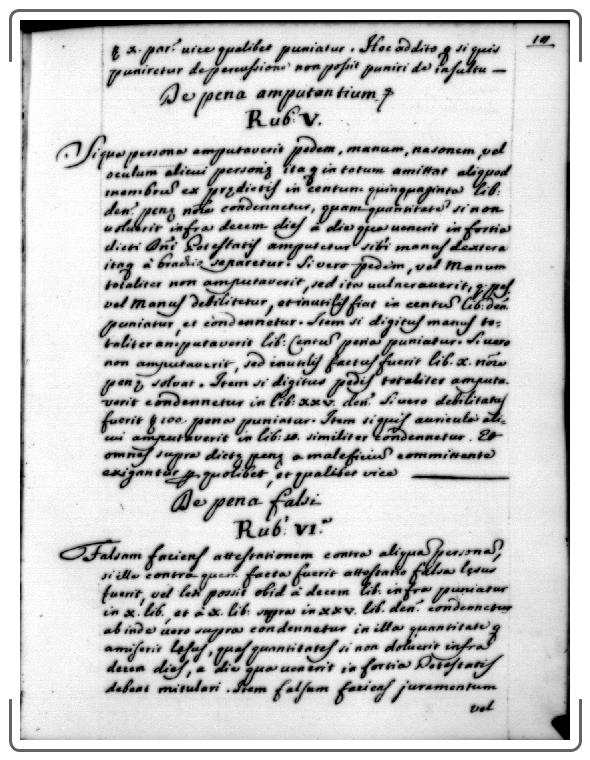 x. par. vice qualibet puniatur. Hoc addito q. si quis
puniretur de percussione non possit puniri de insultu —
De pena amputantium
Rub. V.
Si qua persona amputaverit pedem, manum, nasonem, vel
oculum alicui personę ita q in totum amittat aliquod
membrũ ex prędictis in centum quinquaginta lib:
den. penę noĩe condennetur, quam quantitatẽ si non
voluerit infra decem dies á die qua venerit in fortia
dicti Dñi Potestatis amputetur sibi manus dextera
itaq á brachio separetur. Si vero pedem, vel Manum
totaliter non amputaverit, sed ita vulneraverit, q. pes,
vel Manus debilitetur, et inutilis fiat in centũ lib: deñ.
puniatur, et condennetur. Item si digitus manus to-
taliter amputaverit lib: Centũ pena puniatur. Si vero
non amputaverit, sed inutilis factus fuerit lib. x. noĩe
penę solvat. Item si digitus pedis totaliter amputa-
verit condennetur in lib: xxv. deñ. Si vero debilitatus
fuerit pena puniatur. Item si quis auricula ali-
cui amputaverit in lib: similiter condennetur. Et
omnes supra dictę penę a maleficiũ committente
exigantur p. quolibet, et qualibet vice
De pena falsi
Rub. VI.
Falsam faciens attestationem contra aliquã personã,
si illa contra quem facta fuerit attestatio falsa lęsus
fuerit, vel ledi possit obid á decem lib. infra puniatur
in x. lib. et á x. lib. supra in xxv. lib. deñ. condennetur
ab inde vero supra condennetur in illa quantitate q
amiserit lęsus, quas quantitates si non soluerit infra
decem dies, a die qua venerit in fortia Potestatis
debeat mitulari. Item falsum faciens juramentum
vel